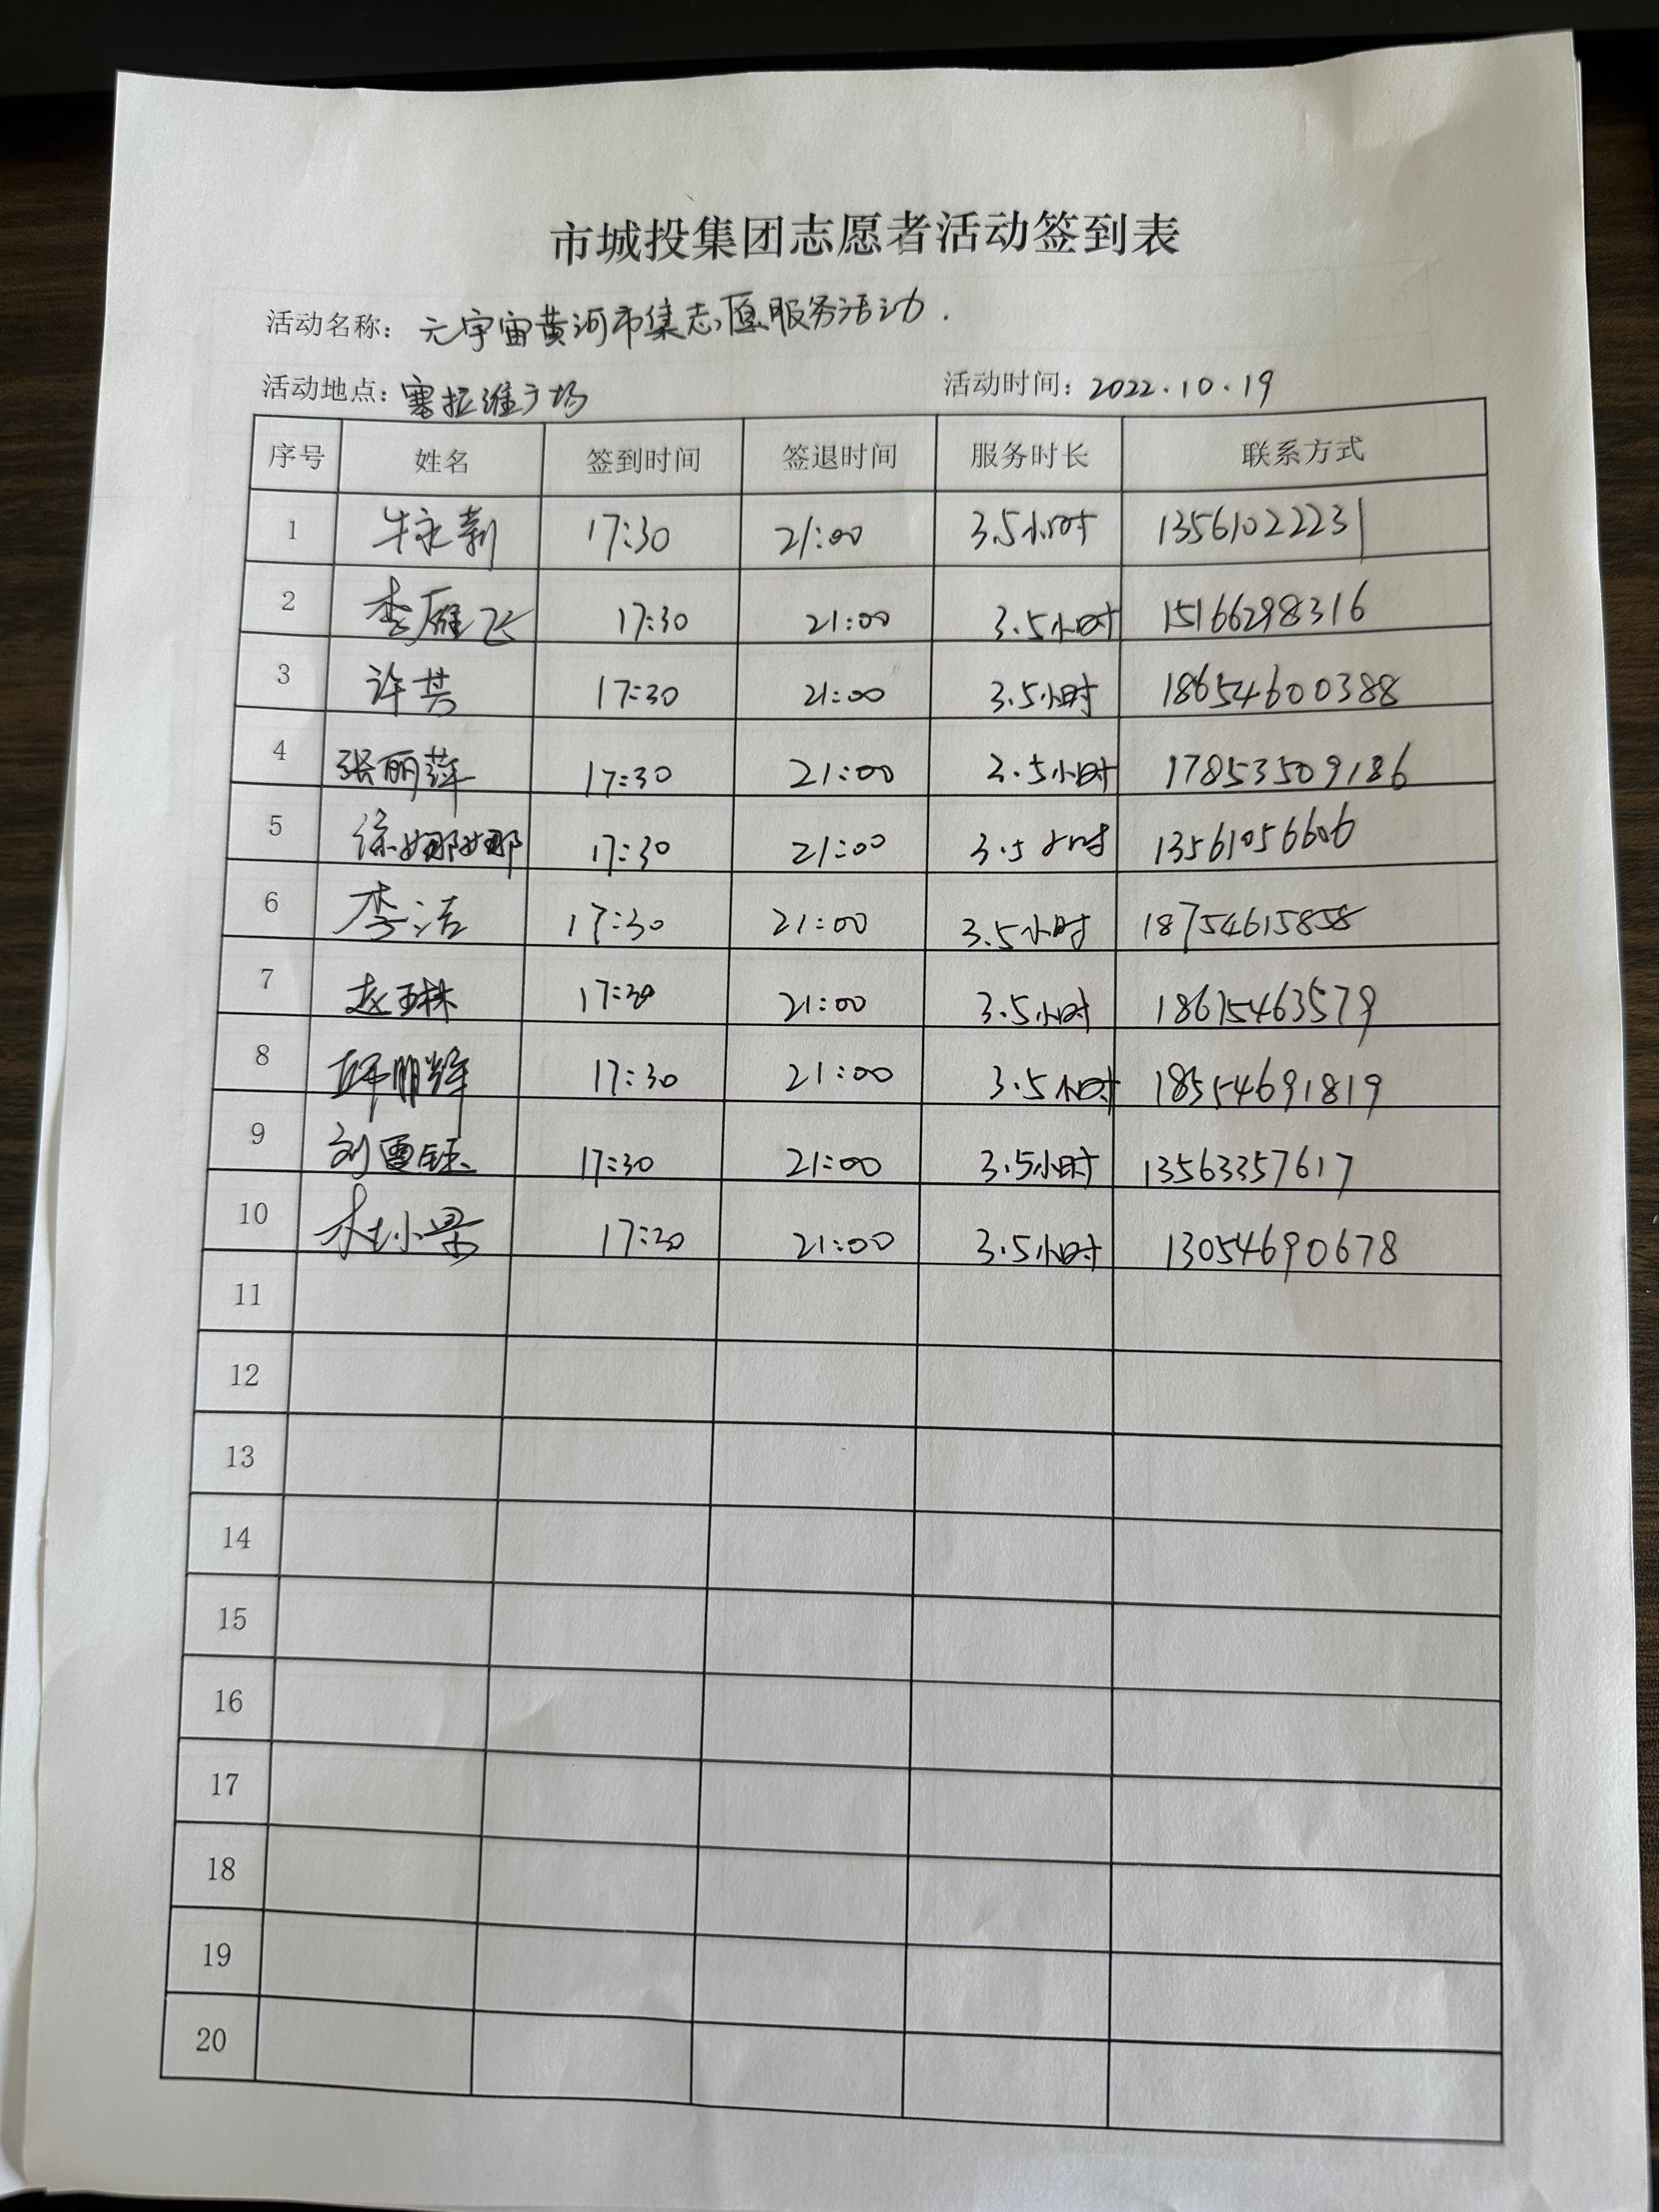 市城投集团志愿者活动签到表
活动名称：元宇宙黄河市集志愿服务活动.
活动地点：塞拉维广场 活动时间：2022.10.19
序号 姓名 签到时间 签退时间 服务时长 联系方式
1 牛永新 17:30 21:00 3.5小时 13561022231
2 李雁飞 17:30 21:00 3.5小时 15166298316
3 许芸 17:30 21:00 3.5小时 18654600388
4 张丽萍 17:30 21:00 3.5小时 17853509186
5 徐娜娜 17:30 21:00 3.5小时 13561056606
6 李洁 17:30 21:00 3.5小时 18754615858
7 赵玉林 17:30 21:00 3.5小时 18615463579
8 17:30 21:00 3.5小时 18554691819
9 刘雪钰 17:30 21:00 3.5小时 13563357617
10 杜小景 17:30 21:00 3.5小时 13054690678
11
12
13
14
15
16
17
18
19
20